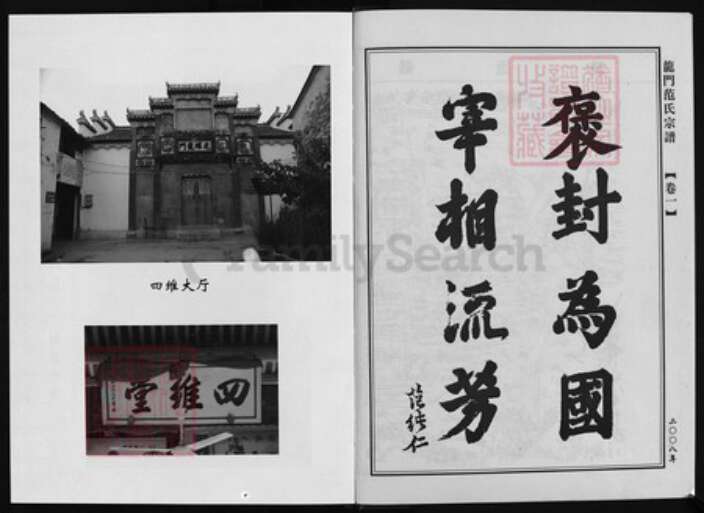 四维大厅
四維堂
褒封為國
宰相流芳
范徐仁
龍門范氏宗譜
【卷一】
二〇〇八年
FamilySearch